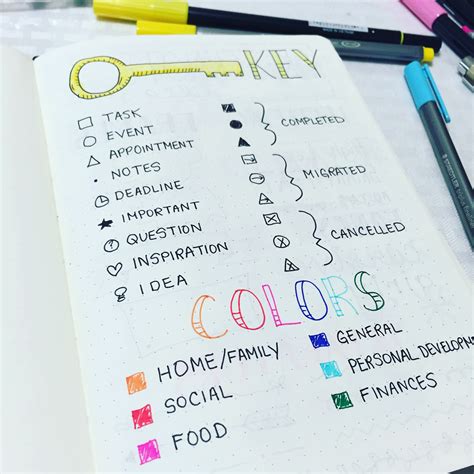 KEY
TASK
EVENT
APPOINTMENT
NOTES
DEADLINE
IMPORTANT
QUESTION
INSPIRATION
IDEA
COMPLETED
MIGRATED
CANCELLED
COLORS
HOME/FAMILY
SOCIAL
FOOD
GENERAL
PERSONAL DEVELOPM
FINANCES